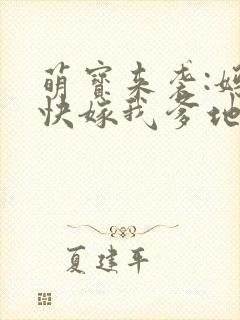 萌宝来袭:
快嫁我爹地
夏建平